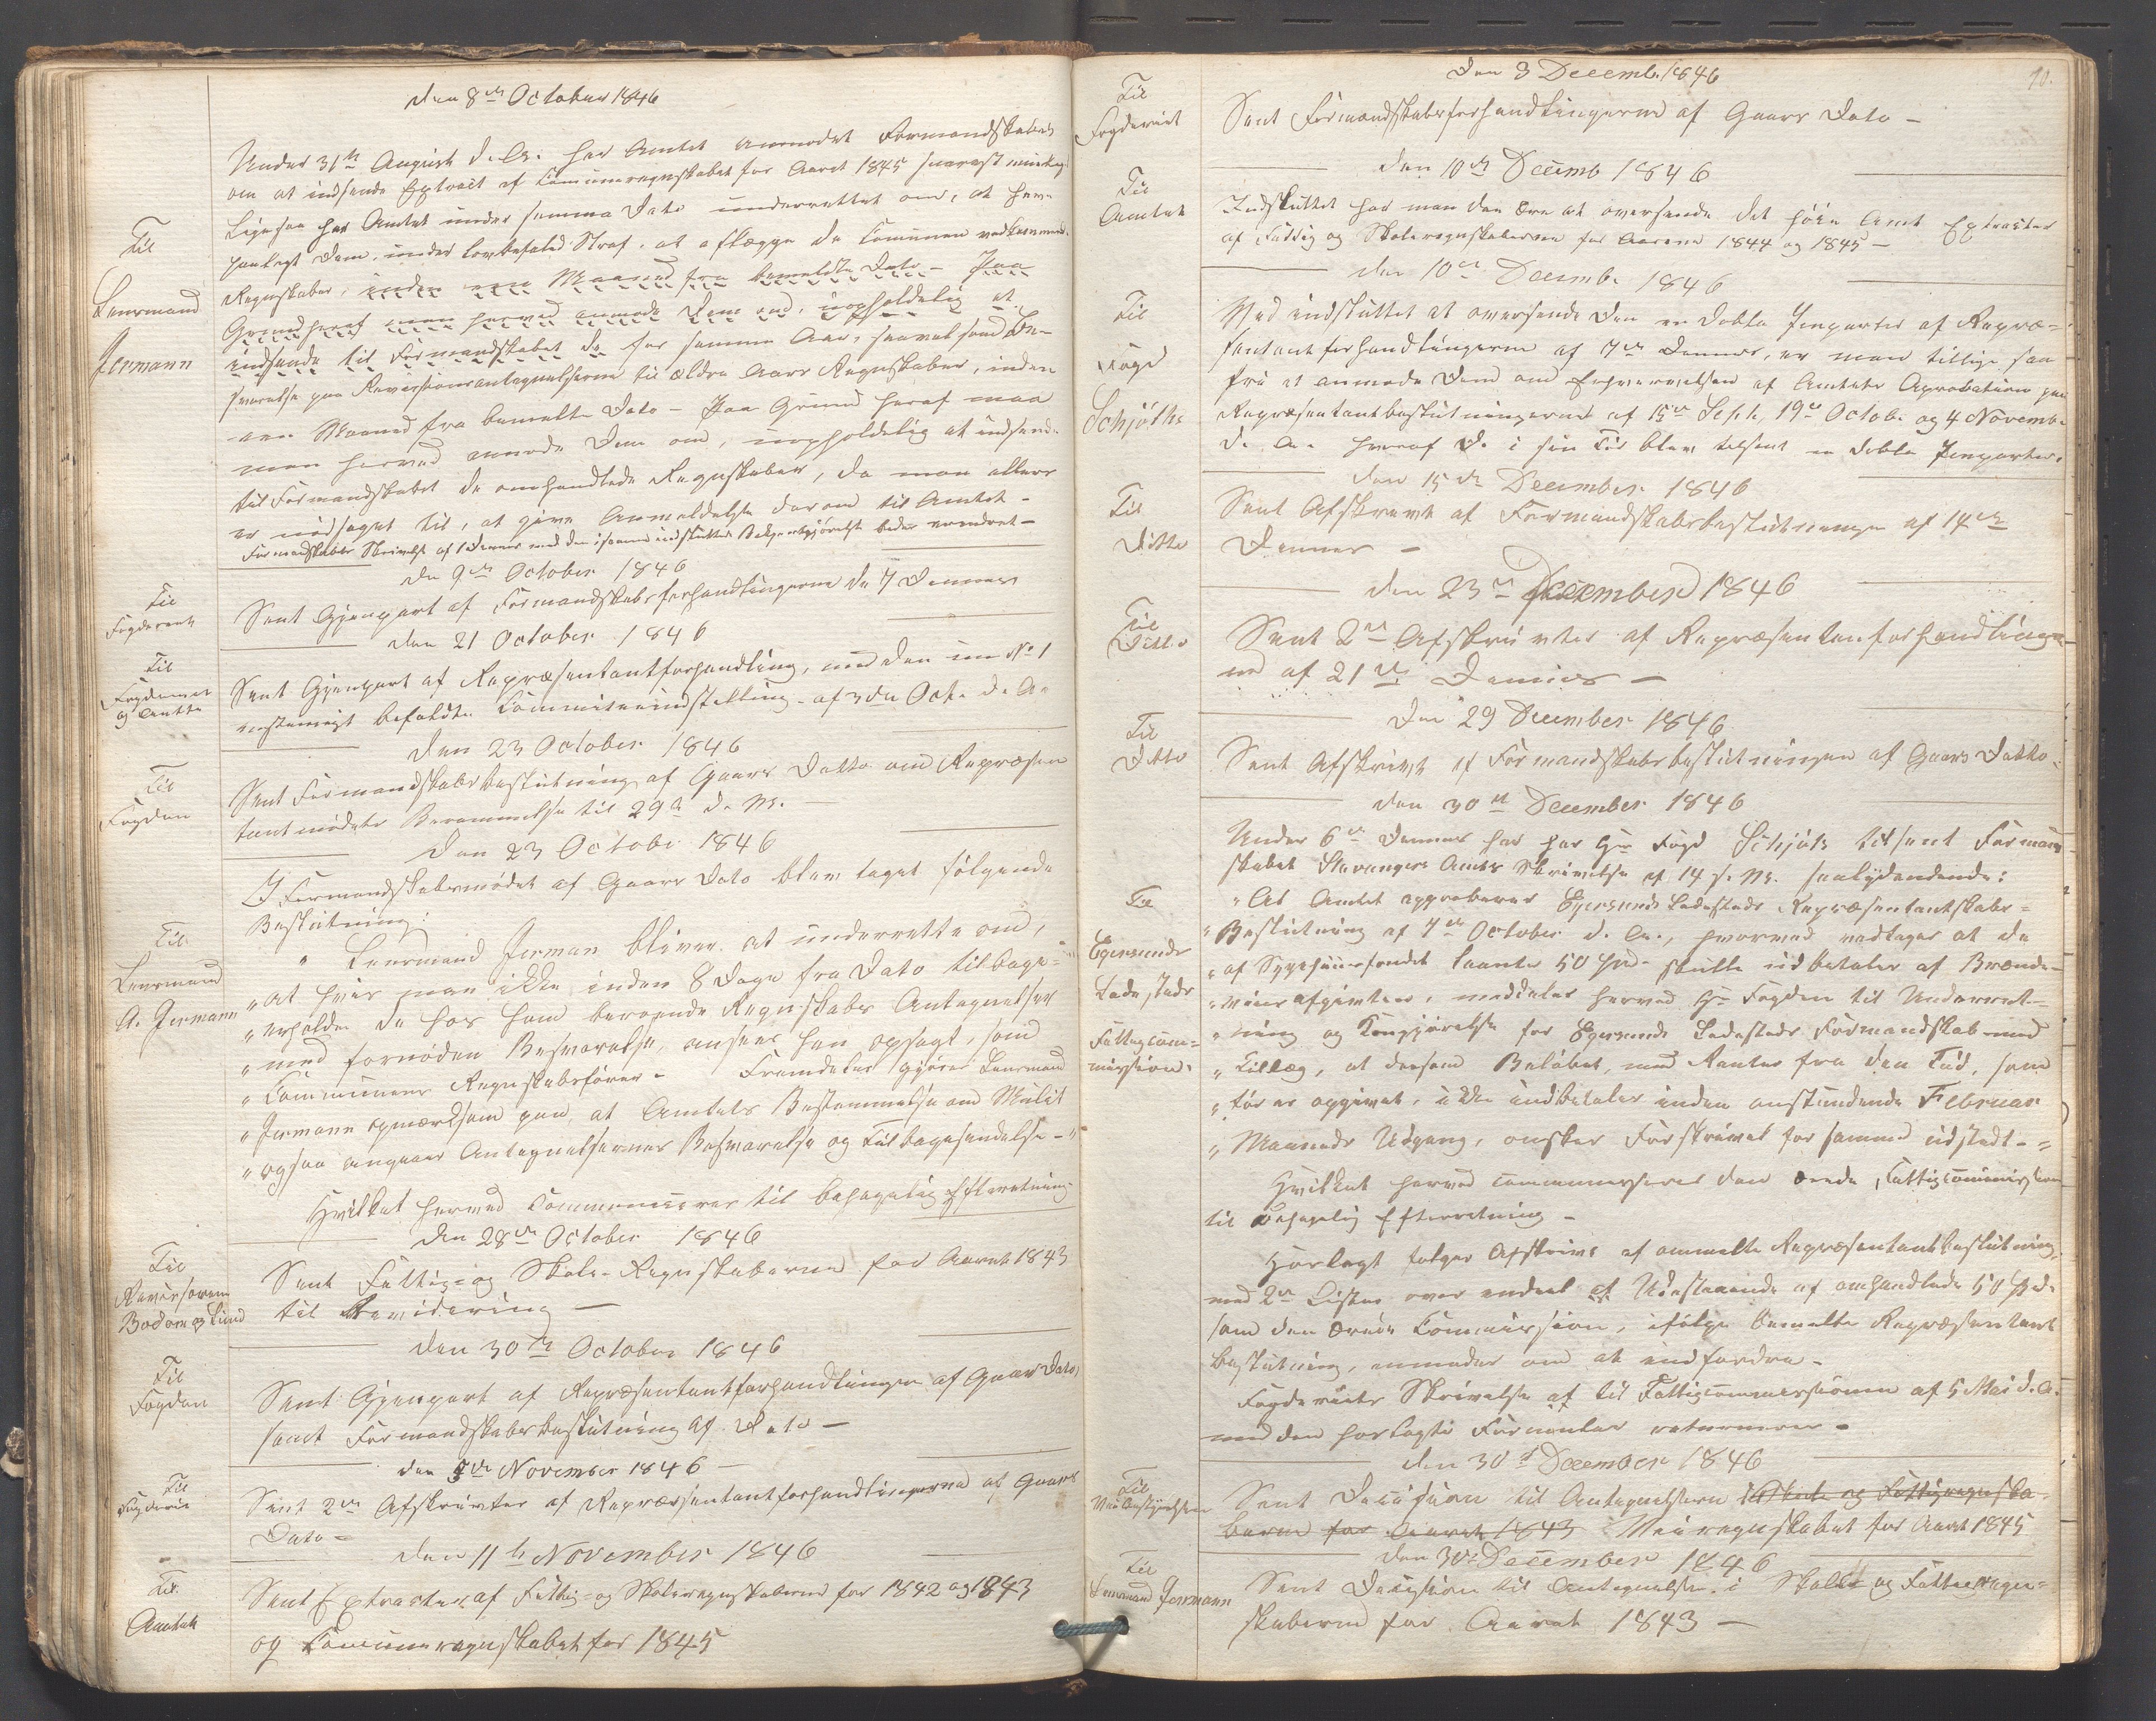 den 8de October 1846
Til
Lensmand
Jermann
Under 31te August d. A. har Amtet anmodet Formandskabet
om at indsende Extract af Communeregnskabet for Aaret 1845 snarest mueligt
Ligesaa har Amtet under samme Dato underrettet om, at have
paalagt Dem, under lovbefalet Straf, at aflægge de Communen vedkommende
Regnskaber, inden een Maaned fra bemeldte Dato – Paa
Grund heraf maa herved anmode Dem om, uopholdelig at
indsende til Formandskabet de for samme Aar, saavelsom Be-
svarelse paa Revisionsantegnelserne til ældre Aars Regnskaber, inden
een Maaned fra bemeldte Dato – Paa Grund heraf maa
man herved anmode Dem om, uopholdelig at indsende
til Formandskabet de omhandlede Regnskaber, da man ellers
er nødsaget til, at give Anmeldelse derom til Amtet –
Formandskabets Skrivelse af 1 Dennes med den i samme indsluttede Bekjentgjørelse bedes
den 9de October 1846
Til
Fogderiet
Sent Gjenpart af Formandskabsforhandlingerne de 7 Dennes
den 21 October 1846
Til
Fogderiet
og Amtet
Sent Gjenpart af Repræsentantforhandling, med den No 1
befalede Committeeindstilling af 3die Oct. d. A.
den 23 October 1846
Til
Fogden
Sent Formandskabsbeslutning af Gaars Datto om Repræsen
tantmødets Berammelse til 29de d. M.
den 23 Octobr 1846
Til
Lensmand
A. Jermann
I Formandskabsmødet af Gaars Dato blev taget følgende
Beslutning:
" Lensmand Jerman bliver at underrette om,
" at hvis man ikke inden 8 Dage fra Dato tilbage-
" erholder de hos ham beroende Regnskabs Antegnelser
" med fornøden Besvarelse, ansees han opsagt, som
" Communens Regnskabsfører – Fremdeles gjøres Lensmand
" Jermann opmærksom paa, at Amtets Bestemmelse om Mulct
" ogsaa angaaer Antegnelsernes Besvarelse og Tilbagesendelse – "
Hvilket herved Communiceres til behagelig Efterretning
den 28de October 1846
Til
Revisorerne
Bodom og Lund
Sent Fattig- og Skole-Regnskaberne for Aaret 1843
til Revidering –
den 30te October 1846
Til
Fogden
Sent Gjenpart af Repræsentantforhandlingen af Gaars Dato,
samt Formandskabsbeslutning af Dato –
den 5de November 1846 –
Til
Fogderiet
Sent 2de Afskrivter af Repræsentantforhandlingerne af Gaars
Dato –
den 11te November 1846
Til
Amtet
Sent Extracter af Fattig- og Skoleregnskaberne for 1842 og 1843
og Communeregnskabet for 1845
10.
Den 3 Decemb. 1846
Til
Fogderiet
Sent Formandskabsforhandlingerne af Gaars Dato –
den 10de Decemb 1846
Til
Amtet
Indsluttet har man den Ære at oversende det høie Amt Extracter
af Fattig og Skoleregnskaberne for Aarene 1844 og 1845 –
den 10de Decemb. 1846
Til
Foged
Schjøth
Med indsluttet at oversende Dem en dobbelt Gjenpart af Repræ-
sentantforhandlingerne af 7de Dennes, er man tillige saa
fri at anmode Dem om Erhvervelsen af Amtets Aprobation paa
Repræsentantbeslutningerne af 15de Sept., 19de Octob. og 4 Novemb.
d. A. hvoraf De i sin Tid blev tilsent en dobbelt Gjenpart.
den 15de December 1846
Til
Ditto
Sent Afskrivt af Formandskabsbeslutningen af 14de
Dennes –
den 23de December 1846
Til
Ditto
Sent 2de Afskrivter af Repræsentantforhandlinger
ne af 21de Dennes –
Den 29 December 1846
Til
Ditto
Sent Afskrivt af Formandskabsbeslutningen af Gaars Datto
den 30te December 1846
Til
Egersunds
Ladesteds
Fattigcom-
mission.
Under 6te Dennes har Hr Foged Schjøth tilsent Formand
skabet Stavangers Amts Skrivelse af 14 f. M. saalydendende:
" At Amtet approberer Egersunds Ladesteds Repræsentantskabs-
" Beslutning af 7de October d. A., hvorved vedtages at de
" af Sygehuusfondet laante 50 Spd. skulle udbetales af Brænde-
" viinsafgivten, meddeles herved Hr Fogden til Underret-
" ning og Kongjørelse for Egersunds Ladesteds Formandskab med
" Tillæg, at dersom Beløbet, med Renter fra den Tid, som
" før er opgivet, ikke indbetales inden anstundende Februar
" Maaneds Udgang, ønskes Forskrivet for samme udstedt – "
Hvilket herved communiceres den ærede Fattigcommission
til behagelig Efterretning –
Hoslagt følger Afskrivt af ommeldte Repræsentantbeslutning,
med 2de Lister over endeel af Udestaaende af omhandlede 50 Spd.
som den ærede Commission, ifølge bemeldte Repræsentant
beslutning, anmodes om at indfordre –
Fogderiets Skrivelse af til Fattigcommissionen af 5 Mai d. A.
med den hoslagte Formular returneres –
den 30te December 1846
Til
Veibestyrelsen
Sent Decision til Antegnelserne i Skole og Fattigregnska-
berne for Aaret 1843 Veiregnskabet for Aaret 1845
den 30te December 1846
Til
Lensmand Jermann
Sent Decision til Antegnelser i Skole og Fattigregn-
skaberne for Aaret 1843 –